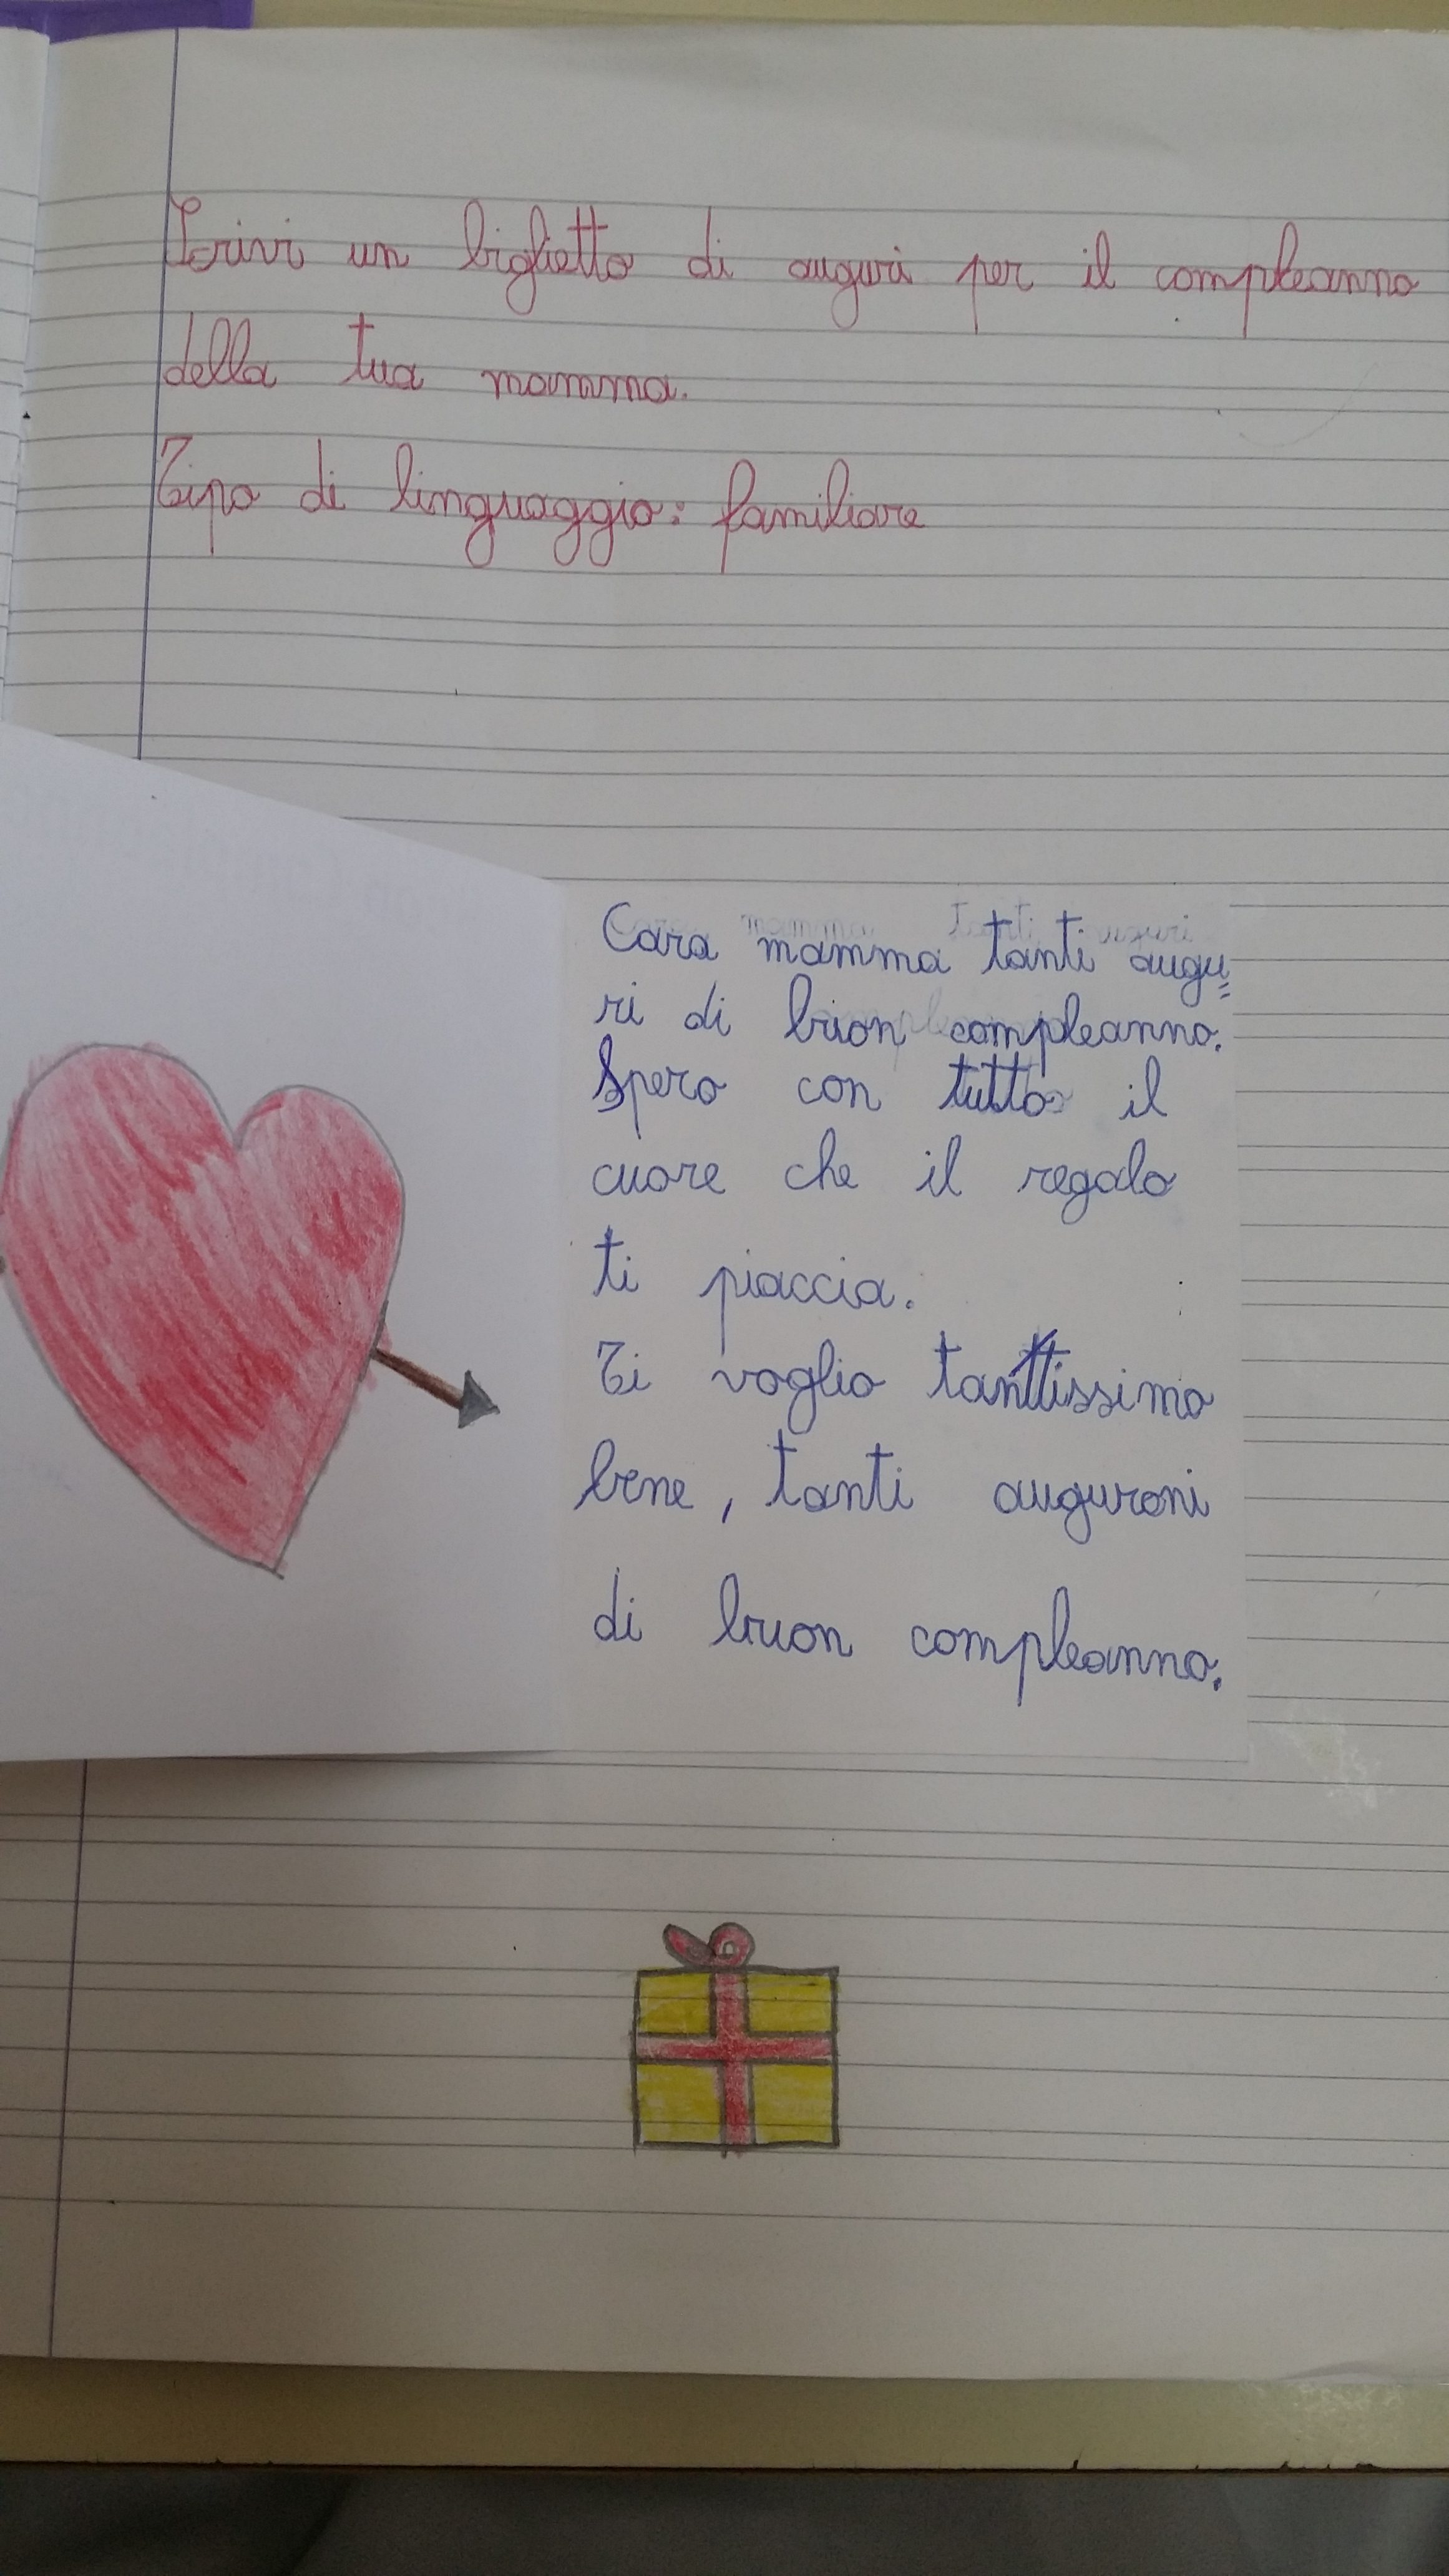 Scrivi un biglietto di auguri per il compleanno
della tua mamma.
Tipo di linguaggio: familiare
Cara mamma tanti augu=
ri di buon compleanno.
Spero con tutto il
cuore che il regalo
ti piaccia.
Ti voglio tantissimo
bene, tanti auguroni
di buon compleanno.